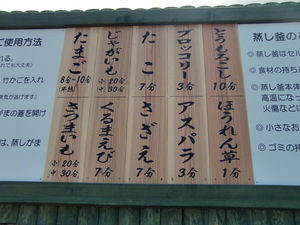 とうもろこし 10分
ほうれん草 1分
ブロッコリー 3分
アスパラ 3分
たこ 7分
さざえ 7分
じゃがいも 小20分 中30分
くるまえび 7分
たまご 8分~10分
さつまいも 小20分 中30分
ご使用方法
竹かごを入れ
蒸し釜の
蒸し釜はセル
食材の持ち
蒸し釜本体
高温になっ
火傷などに
小さなお
ゴミの持